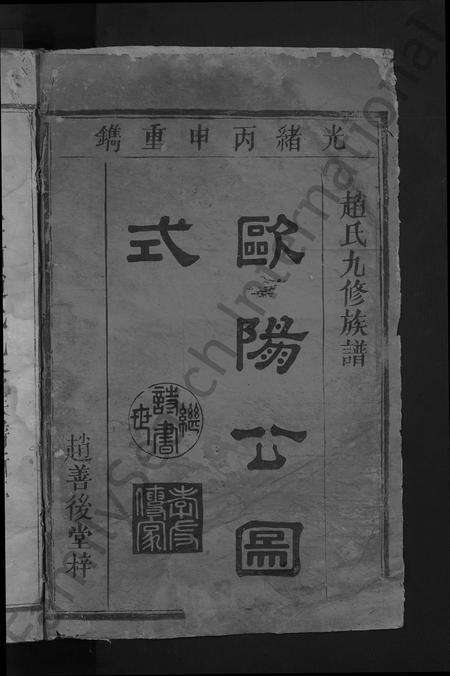 光緒丙申重鐫
趙氏九修族譜
歐陽公圖
式
詩書繼世
孝友傳家
趙善後堂梓